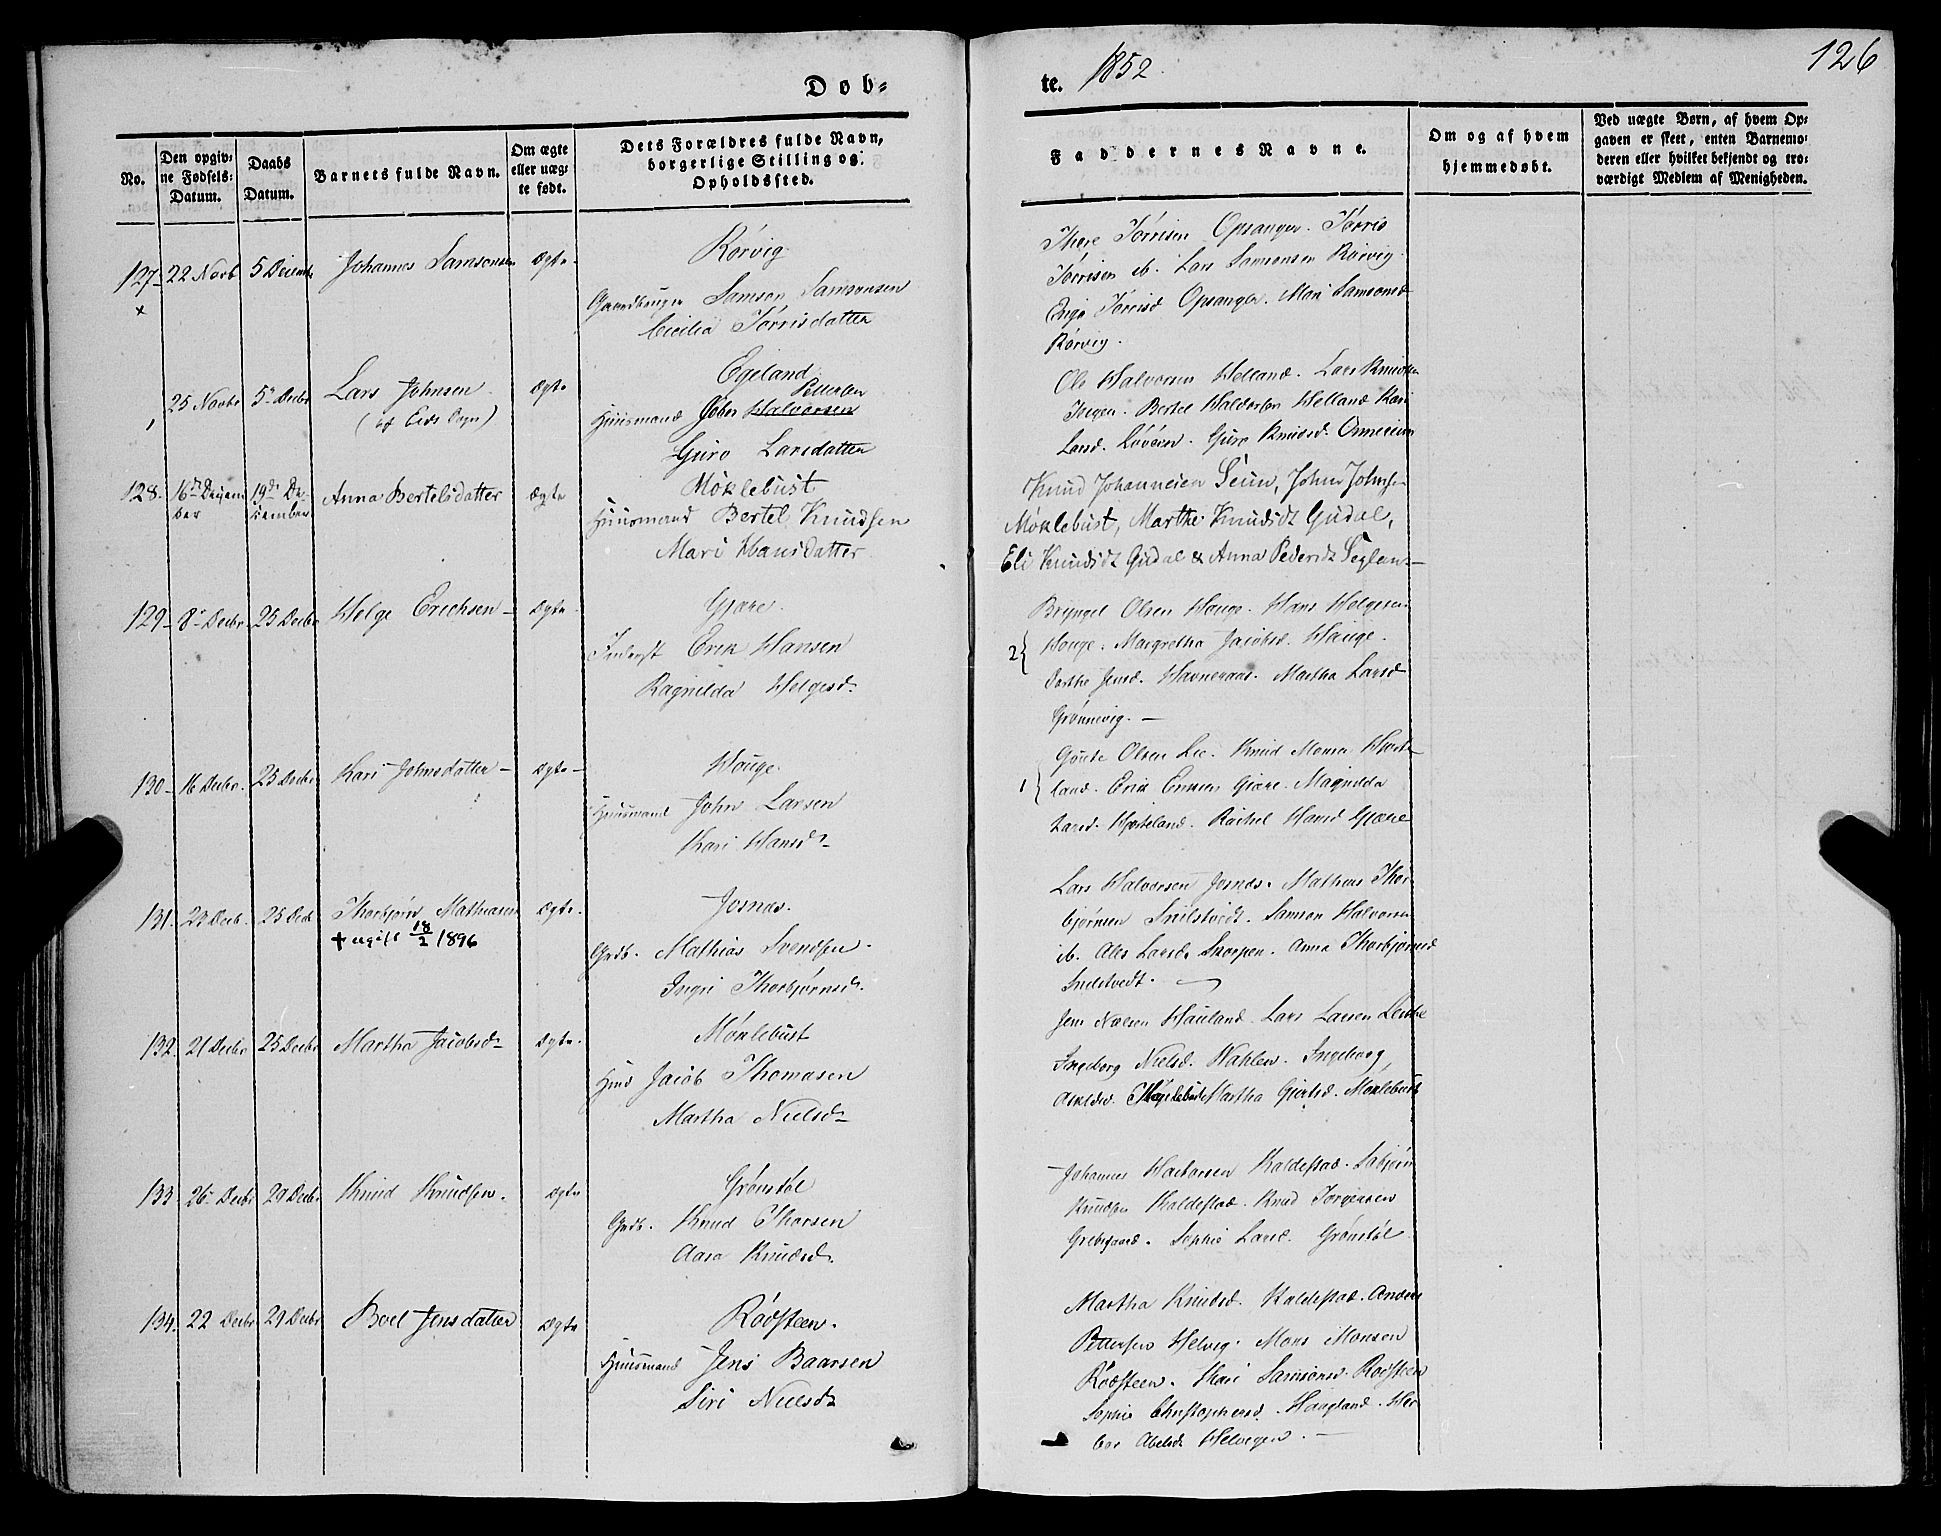 Dob-
te. 1852.
126
No.
Den opgiv-
ne Fødsels-
Datum.
Daabs
Datum.
Barnets fulde Navn.
Om ægte
eller uæg-
te født.
Dets Forældres fulde Navn,
borgerlige Stilling og
Opholdssted.
Faddernes Navne.
Om og af hvem
hjemmedøbt.
Ved uægte Børn, af hvem Op-
gaven er skeet, enten Barnemo-
deren eller hvilket bekjendt og tro-
værdigt Medlem af Menigheden.
127
x
22 Novb
5 Decembr
Johannes Samsonsen
Ægte
Rørvig
Gaardbruger Samson Samsonsen
Cicilia Tørrisdatter
Thore Tørrisen Opsanger. Tørris
Tørrisen ib. Lars Samsonsen Rørvig.
Tørrisd Opsanger. Mari Samsonsd
Rørvig.
25 Novbr
5 Decbr
Lars Johnsen
(af Eids Sogn)
Ægte
Egeland
Pettersen
Huusmand John Halvorsen
Guro Larsdatter
Ole Halvorsen Helland. Lars Knudsen
Bertel Haldorsen Helland Kari
Larsd. Guro Knudsd.
128.
16de Decem
ber
19de De-
cember
Anna Bertelsdatter
Ægte
Møklebust
Huusmand Bertel Knudsen
Mari Hansdatter
Knud Johannesen Seim, John Johns-
Møklebust, Marthe Knudsdt Gudal,
Eli Knudsdt Gudal & Anna Pedersdt Seglem-
129-
8 Decbr.
25 Decbr
Helge Erichsen-
Ægte
Gjære.
Inderst Erik Hansen
Ragnilda Helgesd.
2{
Bryngel Olsen Houge. Hans Helgesen
Houge. Margretha Jacobsd. Houge.
Dorthe Jensd. Havneraas. Martha Larsd
Grønnevig. -
130-
16 Decbr.
25 Decbr
Kari Johnsdatter-
Ægte-
Houge.
Huusmand John Larsen
Kari Hansd.
1}
Goute Olsen Lie. Knud Monsen Hjarte
land. Erik Gjære. Magnilda
Larsd. Hjarteland. Rachel Hansd Gjære
131.
23 Decb.
25 Decb
Thorbjørn Mathiasen
+ ugift 18/2 1896
Ægte.
Josnæs.
Gadb. Mathias Svendsen.
Ingri Thorbjørnsd.
Lars Halvorsen Josnæs. Mathias Thor
bjørnsen Snilstvedt. Samson Halvorsen
ib. Ales Larsd. Skorpen. Anna Thorbjørnsd
Snilstvedt.
132
21 Decbr
25 Decbr
Martha Jacobsd
Ægte.
Møklebust
Hmd Jacob Thomasen
Martha Nielsd
Jens Nielsen Hauland. Lars Larsen
Ingeborg Nielsd. Wahlen. Ingeborg
Møklebust Martha Gjertsd. Møklebust
133.
26 Decbr
29 Decbr
Knud Knudsen.
Ægte
Grønstøl
Gadb. Knud Thorsen
Aasa Knudsd.
Johannes Kaldestad. Sabjørn
Knudsen Kaldestad. Knud Jørgensen
Sophie Larsd. Grønstøl
134.
22 Decbr
29 Decbr
Boel Jensdatter
Ægte
Rødsteen.
Huusmand Jens Baarsen
Siri Nielsd
Martha Knudsd. Kaldestad. Anders
Pettersen Helvig. Mons Monsen
Rødsteen. Kari Samsonsd. Rødsteen
Sophie Christophersd. Haagland. Her
bor Abelsd. Helvegen. -